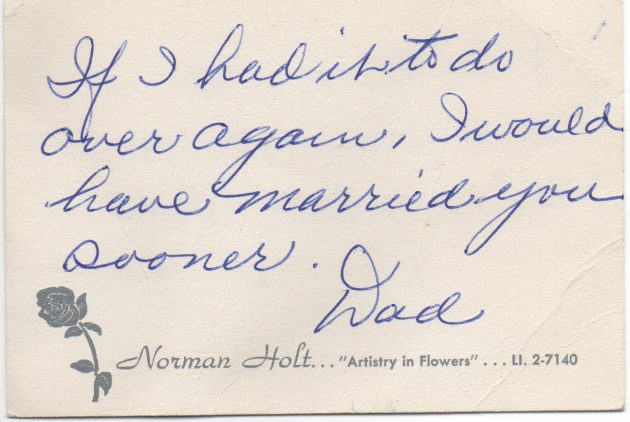 If I had it to do
over again, I would
have married you
sooner.
Dad
Norman Holt... "Artistry in Flowers" ... LI. 2-7140